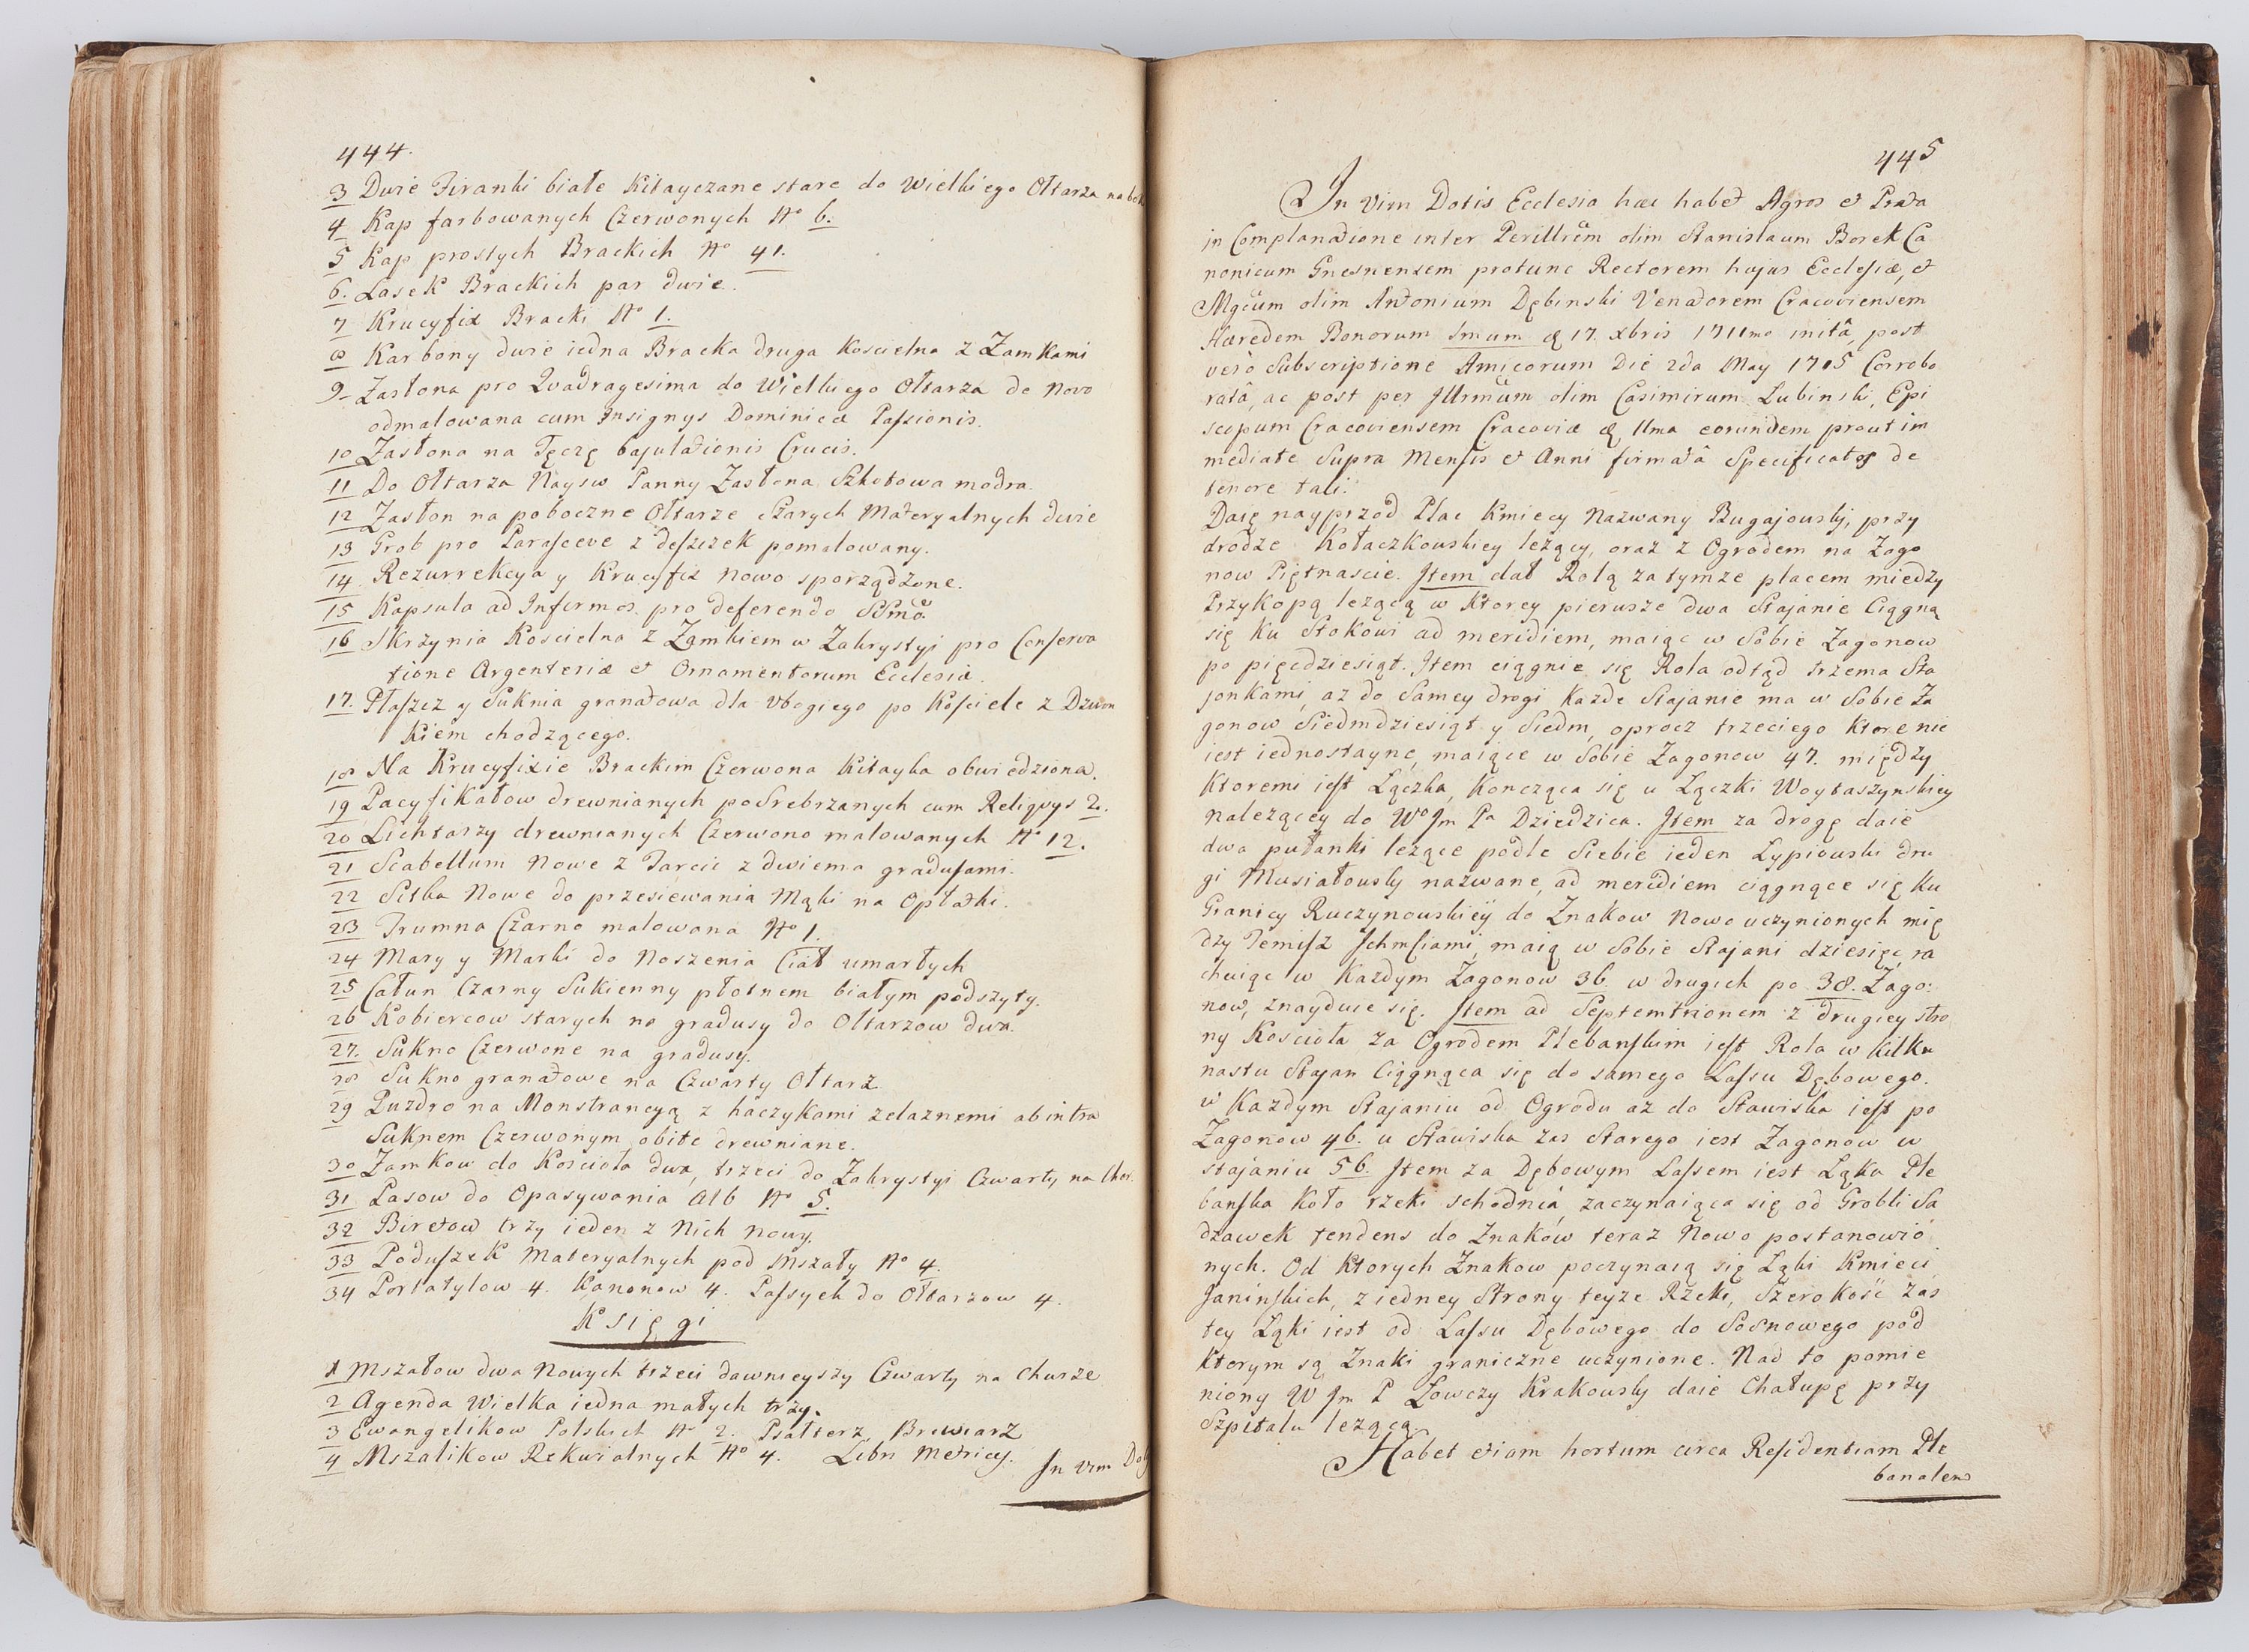 444.
3 Dwie Firanki białe Kitayczane stare do Wielkiego Ołtarza na
4 Kap farbowanych Czerwonych No 6.
5 Kap prostych Brackich No 41.
6. Lasek Brackich par dwie.
7 Krucyfix Bracki No 1.
8 Karbony dwie iedna Bracka druga Koscielna z Zamkami
9 Zasłona pro Quadragesima do Wielkiego Ołtarza de Novo
odmalowana cum Insignys Dominicæ Passionis.
10 Zasłona na Tęczę bajulationis Crucis.
11 Do Ołtarza Naysw Panny Zasłona Szkotowa modra.
12 Zasłon na poboczne Ołtarze Starych Materyalnych dwie
13 Grob pro Parasceve z deszczek pomalowany.
14. Rezurrekcya y Krucyfix Nowo sporządzone.
15 Kapsula ad Infirmos pro deferendo SSmo.
16 Skrzynia Koscielna z Zamkiem w Zakrystyi pro Conserva
tione Argenteriæ et Ornamentorum Ecclesiæ.
17. Płaszcz y Suknia granatowa dla Vbogiego po Kościele z Dzwon
kiem chodzącego.
18 Na Krucyfixie Brackim Czerwona Kitayka obwiedziona.
19 Pacyfikałow drewnianych poSrebrzanych cum Reliqvys 2.
20 Lichtarzy drewnianych Czerwono malowanych No 12.
21 Scabellum Nowe z Tarcic z dwiema gradusami.
22 Sitka Nowe do przesiewania Mąki na Opłatki.
23 Trumna Czarno malowana No 1.
24 Mary y Marki do Noszenia Ciał umarłych
25 Całun Czarny Sukienny płotnem białym podszyty.
26 Kobiercow starych na gradusy do Ołtarzow dwa.
27. Sukno Czerwone na gradusy.
28 Sukno granatowe na Czwarty Ołtarz
29 Puzdro na Monstrancyą z haczykami zelaznemi ab intra
Suknem Czerwonym obite drewniane.
30 Zamkow do Kościoła dwa, trzeci do Zakrystyi Czwarty na Chor.
31 Pasow do Opasywania Alb No 5.
32 Biretow trzy ieden z Nich nowy.
33 Poduszek Materyalnych pod Mszały No 4.
34 Portatylow 4. Kanonow 4. Passyek do Ołtarzow 4.
Księgi
1 Mszałow dwa Nowych trzeci dawnieyszy Czwarty na Churze
2 Agenda Wielka iedna małych trzy.
3 Ewangelikow Polskich No 2. Psałterz, Brewiarz
4 Mszalikow Rekwialnych No 4. Libri Metrices.
In vim
445
In Vim Dotis Ecclesia hæc habet Agros et Prata
in Complanatione inter Perillrem olim Stanislaum Borek Ca
nonicum Gnesnensem protunc Rectorem hujus Ecclesiæ, et
Mgcum olim Antonium Dębinski Venatorem Cracoviensem
Hæredem Bonorum 17. Xbris 1711mo initâ, post
vero Subscriptione Amicorum Die 2da May 1715 Corrobo
ratâ, ac post per Illrmum olim Casimirum Lubinski, Epi
scopum Cracoviensem Cracoviæ 11ma eorundem prout im
mediate Supra Mensis et Anni firmatâ Specificatos de
tenore tali.
Daię nayprzod Plac Kmiecy Nazwany Bugajowski, przy
drodze Kołaczkowskiey leżący, oraz z Ogrodem na Zago
now Piętnascie. Item dał Rolą za tymze placem miedzy
Przykopą leżącą w Ktorey pierwsze dwa Stajanie Ciągną
się ku Stokowi ad meridiem, maiąc w Sobie Zagonow
po pięcdziesiąt. Item ciągnie się Rola odtąd trzema Sta
jonkami, az do Samey drogi każde Stajanie ma w Sobie Za
gonow Siedmdziesiąt y Siedm, oprocz trzeciego Ktore nie
iest iednostayne, maiące w Sobie Zagonow 47. między
Ktoremi iest Łączka, Kończąca się u Łączki Woytaszynskiey
należącey do Wo Jm Pa Dziedzica. Item za drogę daie
dwa pułanki leżące podle Siebie ieden Lypiowski dru
gi Musiałowsky nazwane, ad meridiem ciągnące się ku
Granicy Ruczynowskiey do Znakow Nowo uczynionych mię
dzy Temisz Jchmsciami, maią w Sobie Stajani dziesięc, ra
chuiąc w Każdym Zagonow 36. w drugich po 38. Zago:
now, znayduie się. Item ad Septemtrionem z drugiey stro
ny Kościoła za Ogrodem Plebanskim iest Rola w kilku
nastu Stajan Ciągnąca się do samego Lassu Dębowego.
w Każdym Stajaniu od Ogrodu az do Stawiska iest po
Zagonow 46. u Stawiska zas Starego iest Zagonow w
stajaniu 56. Item za Dębowym Lassem iest Łąka Ple
banska Koło rzeki schodnia zaczynaiąca się od Grobli Sa
dzawek tendens do Znaków teraz Nowo postanowio
nych. Od Ktorych Znakow poczynaią się Łąki Kmieci
Janinskich, z iedney Strony teyze Rzeki, Szerokość zas
tey Łąki iest od Lassu Dębowego do Sosnowego pod
Ktorym są Znaki graniczne uczynione. Nad to pomie
niony W Jm P Łowczy Krakowsky daie Chałupę przy
Szpitalu lezącą.
Habet etiam hortum circa Residentiam Ple
banalem